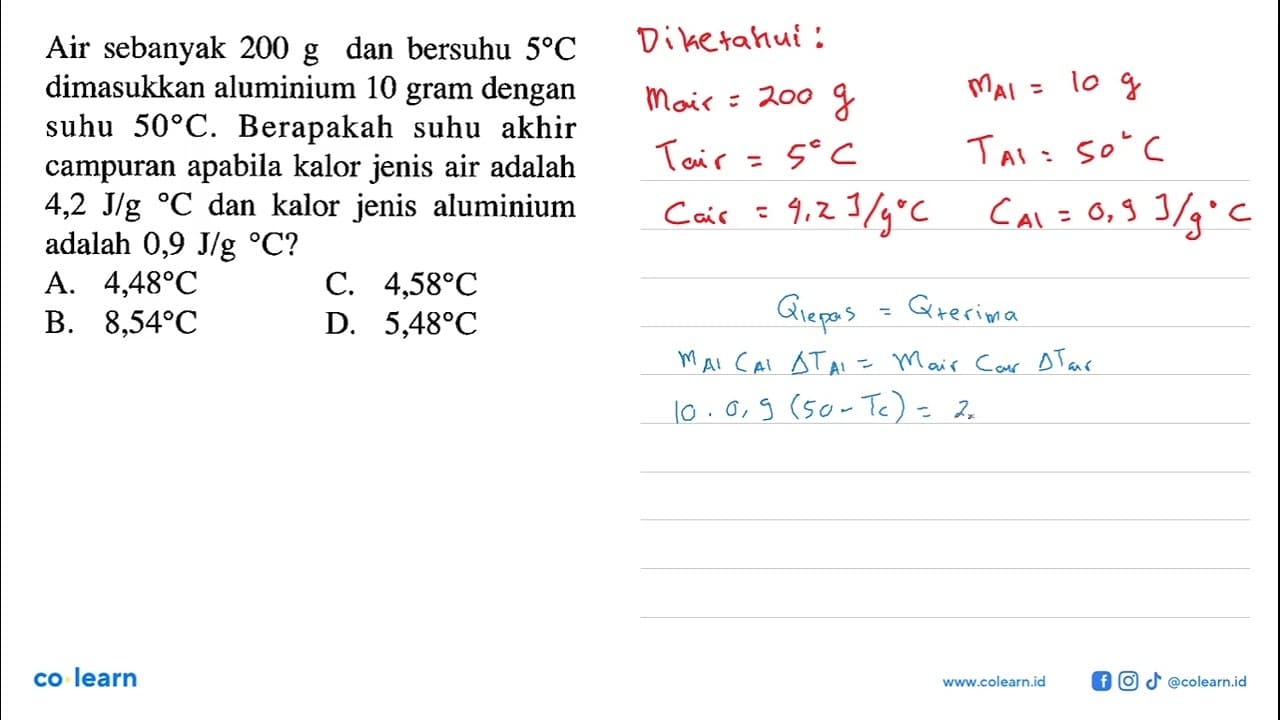 Air sebanyak 200 g dan bersuhu 5°C
dimasukkan aluminium 10 gram dengan
suhu 50°C. Berapakah suhu akhir
campuran apabila kalor jenis air adalah
4,2 J/g °C dan kalor jenis aluminium
adalah 0,9 J/g °C?
A. 4,48°C C. 4,58°C
B. 8,54°C D. 5,48°C
Diketahui :
Mair = 200 g MAl = 10 g
Tair = 5°C TAl = 50°C
Cair = 4,2 J/g°C CAl = 0,9 J/g°C
Qlepas = Qterima
MAl CAl ΔTAl = Mair Cair ΔTair
10 . 0,9 (50 - Tc) = 2
co learn
www.colearn.id @colearn.id